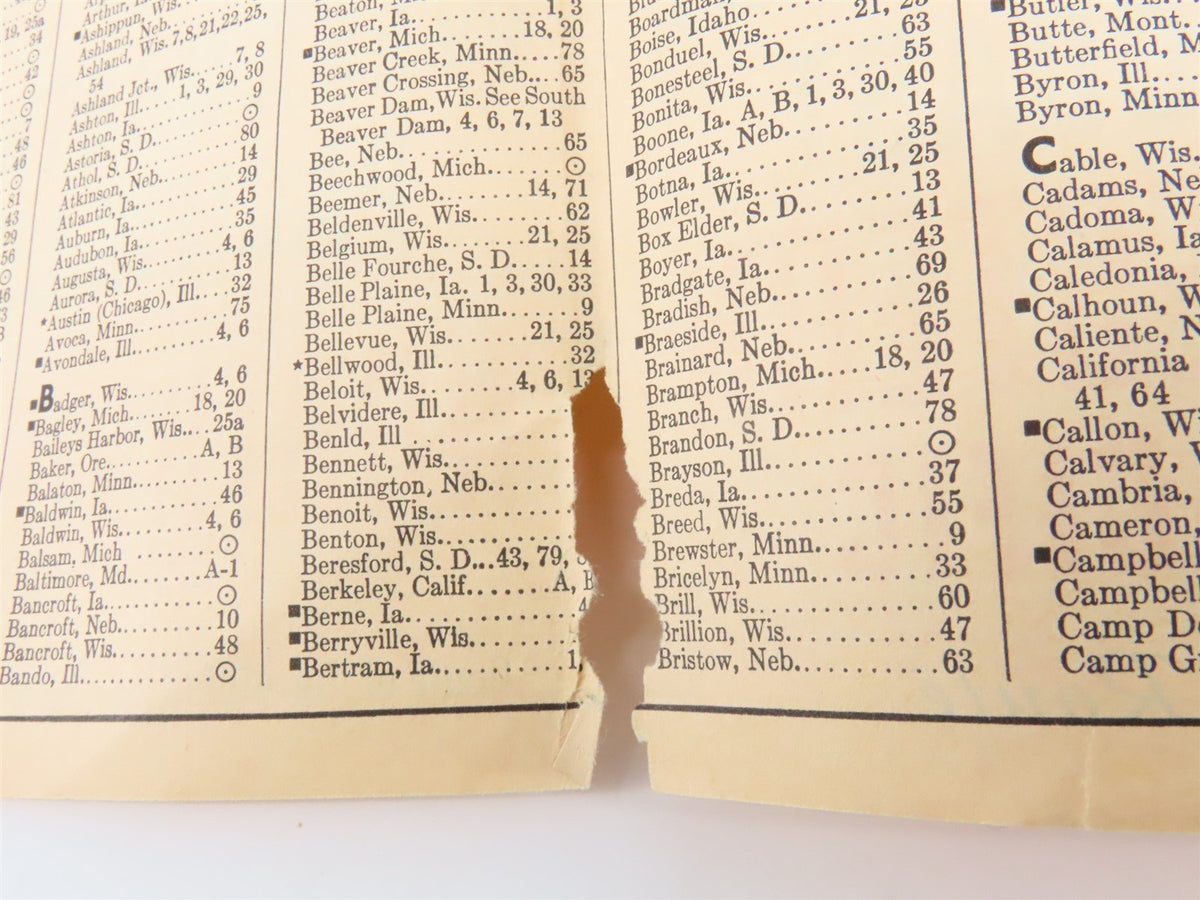 19, 25a
34
⊙
42
⊙
⊙
7
48
46
⊙
81
43
29
56
⊙
46
Arthur,
■Ashippun, Wis.
Ashland, Neb.
Ashland, Wis. 7,8,21,22,25,
54
Ashland Jct., Wis.....7, 8
Ashton, Ill....1, 3, 29, 30
Ashton, Ia..............9
Astoria, S. D...........⊙
Athol, S. D............80
Atkinson, Neb..........14
Atlantic, Ia...........29
Auburn, Ia.............45
Audubon, Ia............35
Augusta, Wis.........4, 6
Aurora, S. D...........13
*Austin (Chicago), Ill....32
Avoca, Minn............75
■Avondale, Ill.........4, 6
■Badger, Wis...........4, 6
■Bagley, Mich.......18, 20
Baileys Harbor, Wis...25a
Baker, Ore...........A, B
Balaton, Minn..........13
■Baldwin, Ia............46
Baldwin, Wis.........4, 6
Balsam, Mich ........⊙
Baltimore, Md........A-1
Bancroft, Ia............⊙
Bancroft, Neb..........10
Bancroft, Wis..........48
Bando, Ill..............⊙
Beaton, Mich.
Beaver, Ia............1, 3
■Beaver, Mich........18, 20
Beaver Creek, Minn....78
Beaver Crossing, Neb...65
Beaver Dam,Wis. See South
Beaver Dam, 4, 6, 7, 13
Bee, Neb...............65
Beechwood, Mich........⊙
Beemer, Neb........14, 71
Beldenville, Wis........62
Belgium, Wis.......21, 25
Belle Fourche, S. D.....14
Belle Plaine, Ia. 1, 3, 30, 33
Belle Plaine, Minn.......9
Bellevue, Wis.......21, 25
*Bellwood, Ill...........32
Beloit, Wis........4, 6, 13
Belvidere, Ill............
Benld, Ill ..............
Bennett, Wis............
Bennington, Neb.........
Benoit, Wis.............
Benton, Wis.............
Beresford, S. D...43, 79,
Berkeley, Calif.......A, B
■Berne, Ia..............4
■Berryville, Wis..........
■Bertram, Ia............1,
Boardman,
Boise, Idaho
Bonduel, Wis.......21, 25
Bonesteel, S. D.........63
Bonita, Wis............55
Boone, Ia. A, B, 1, 3, 30, 40
■Bordeaux, Neb.........14
Botna, Ia..............35
Bowler, Wis........21, 25
Box Elder, S. D.........13
Boyer, Ia..............41
Bradgate, Ia...........43
Bradish, Neb...........69
■Braeside, Ill...........26
Brainard, Neb..........65
Brampton, Mich....18, 20
Branch, Wis............47
Brandon, S. D..........78
Brayson, Ill.............⊙
Breda, Ia..............37
Breed, Wis.............55
Brewster, Minn..........9
Bricelyn, Minn.........33
Brill, Wis..............60
Brillion, Wis...........47
Bristow, Neb...........63
■Butler, Wis.
Butte, Mont.
Butterfield, M
Byron, Ill....
Byron, Minn
Cable, Wis.
Cadams, Ne
Cadoma, W
Calamus, Ia
Caledonia,
■Calhoun, W
Caliente, N
California
41, 64
■Callon, W
Calvary,
Cambria,
Cameron,
■Campbell
Campbel
Camp D
Camp G